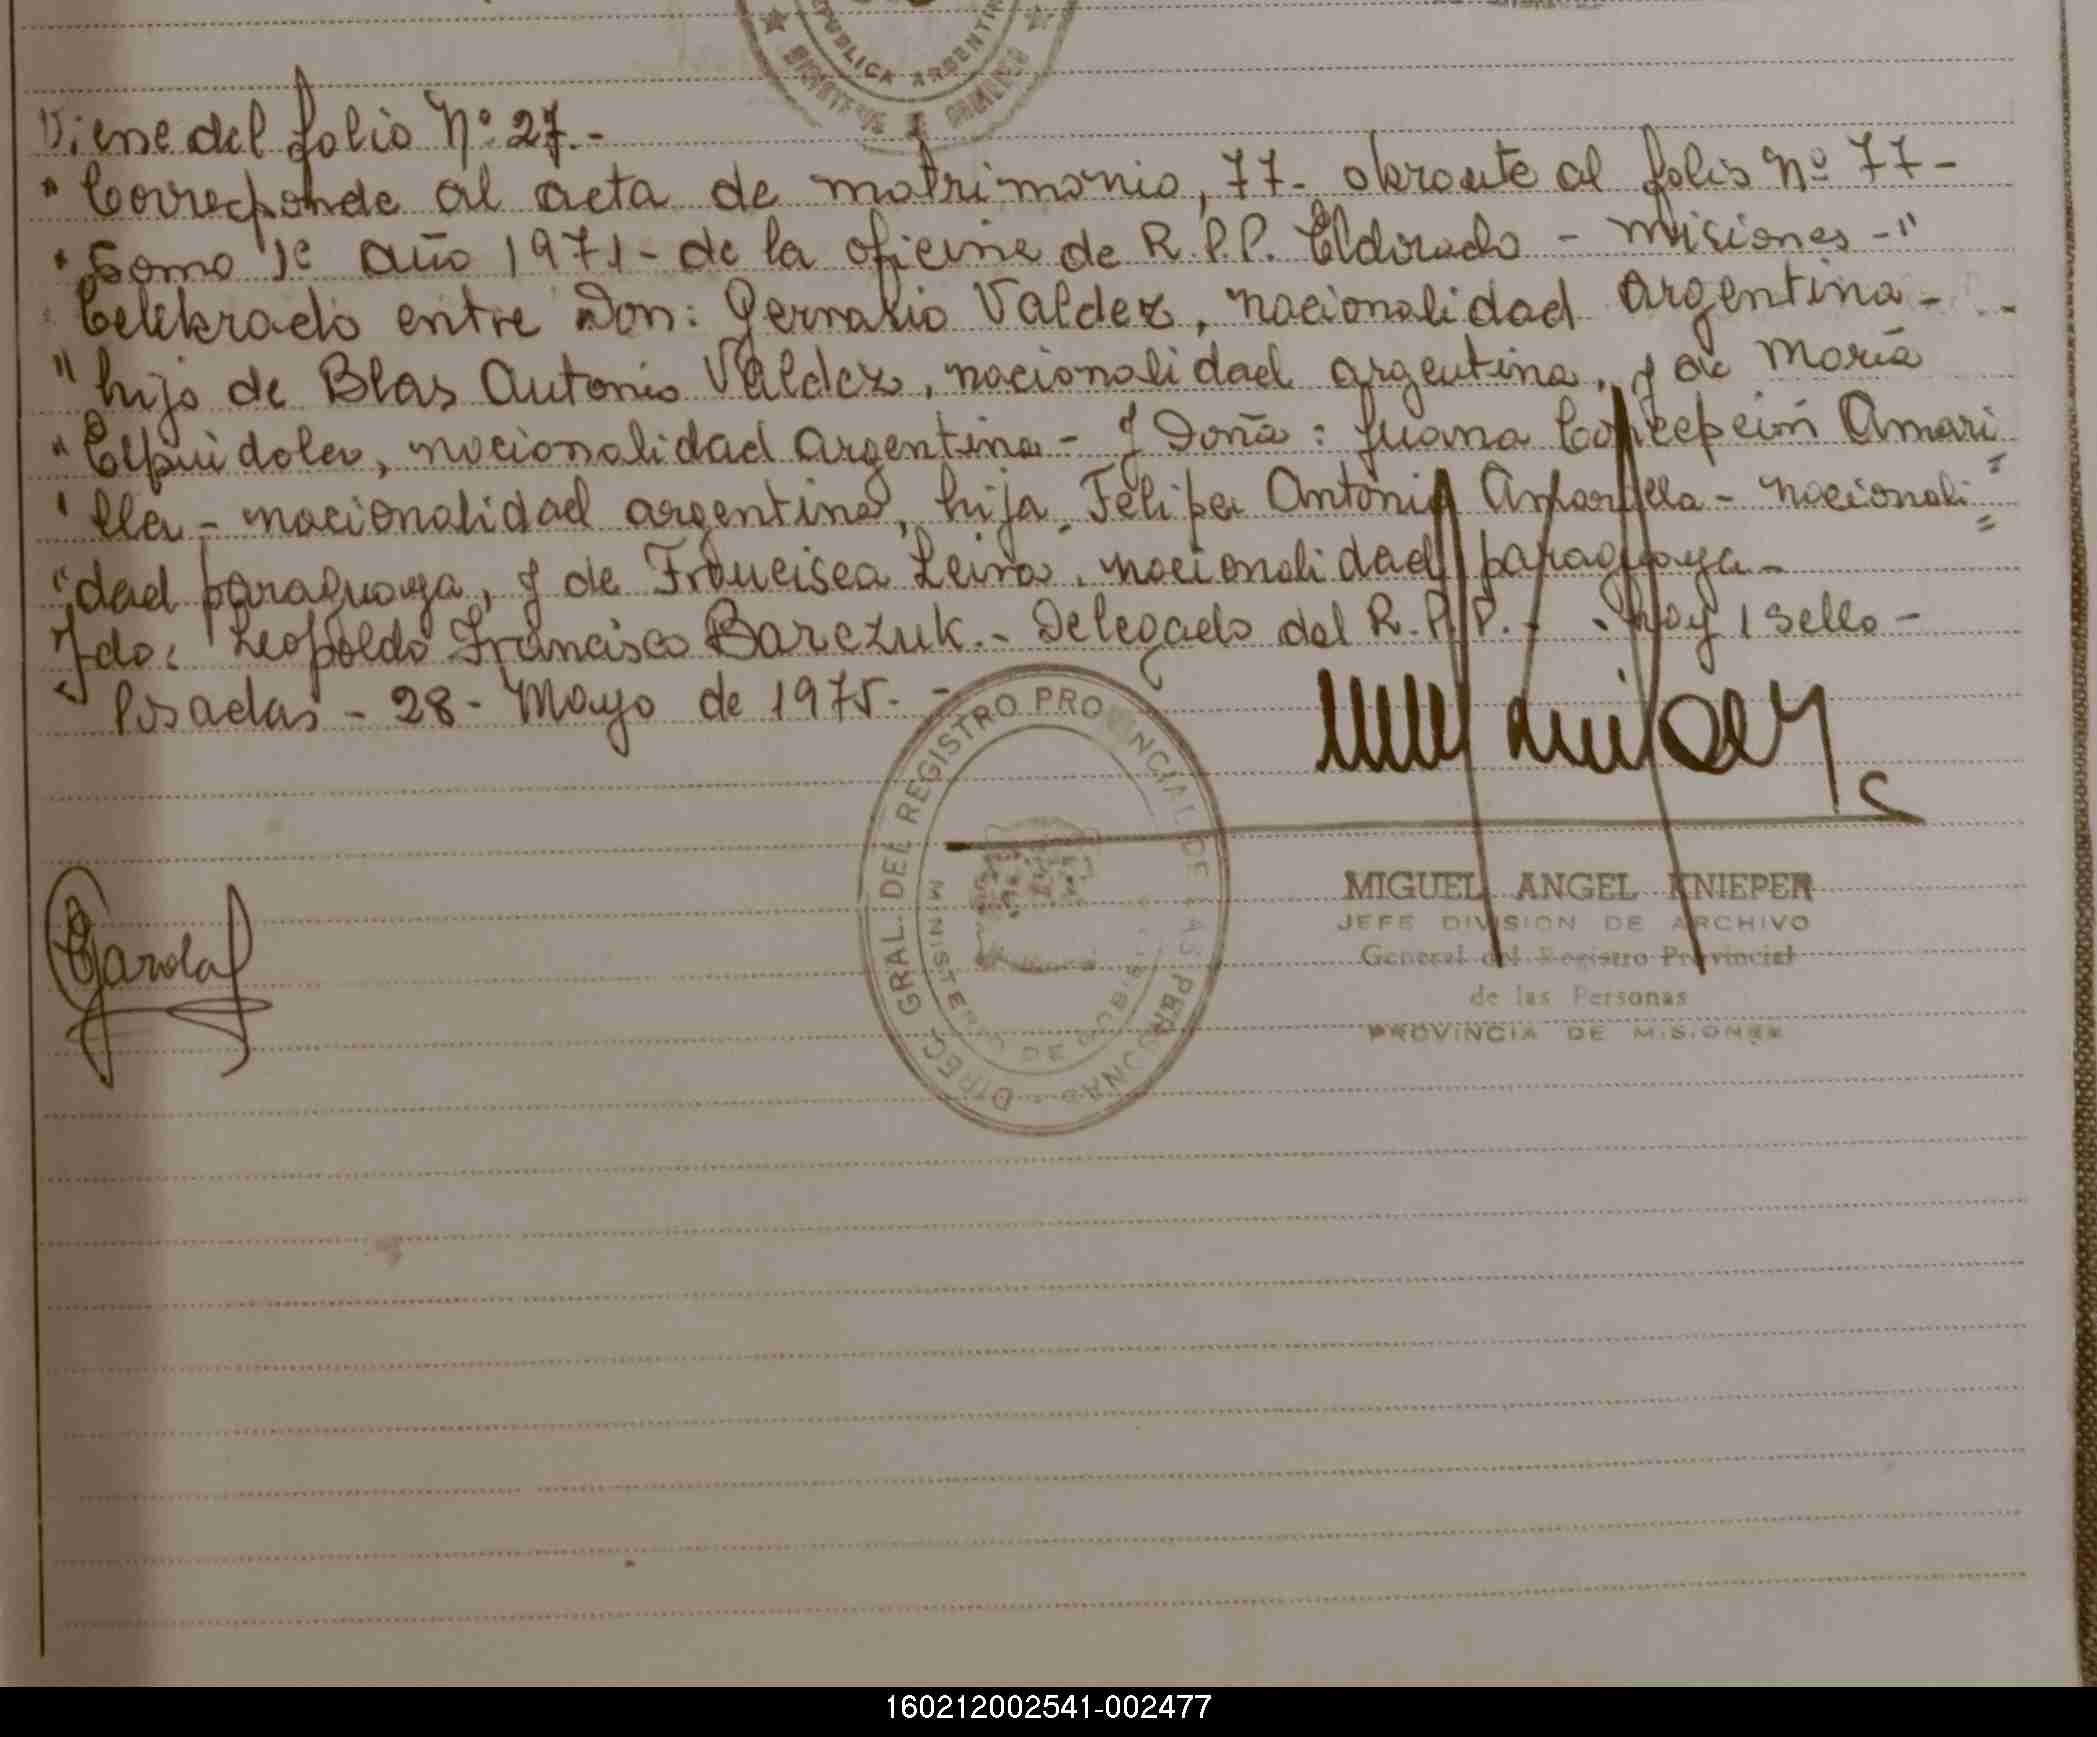 REPUBLICA ARGENTIN
Viene del folio Nº 27.-
" Corresponde al acta de matrimonio, 77- obrante al folio Nº 77-
" Tomo 1º año 1971- de la oficina de R.P.P. Eldorado - Misiones -"
Celebrado entre Don: Gervasio Valdez, nacionalidad argentina-
" hijo de Blas Antonio Valdez, nacionalidad argentina, y de María
" nacionalidad argentina- y Doña: Juana Concepción Amari
" lla - nacionalidad argentina, hija Felipe Antonio Amarilla - nacionali=
" dad paraguaya, y de Francisca Leiva, nacionalidad paraguaya-
Fdo: Leopoldo Francisco Barczuk.- Delegado del R.P.P.- hay 1 sello -
Posadas - 28 - Mayo de 1975.-
DIREC. GRAL. DEL REGISTRO PROVINCIAL DE LAS PERSONAS
MINISTERIO DE GOBIE
MIGUEL ANGEL KNIEPER
JEFE DIVISION DE ARCHIVO
General del Registro Provincial
de las Personas
PROVINCIA DE MISIONES
160212002541-002477